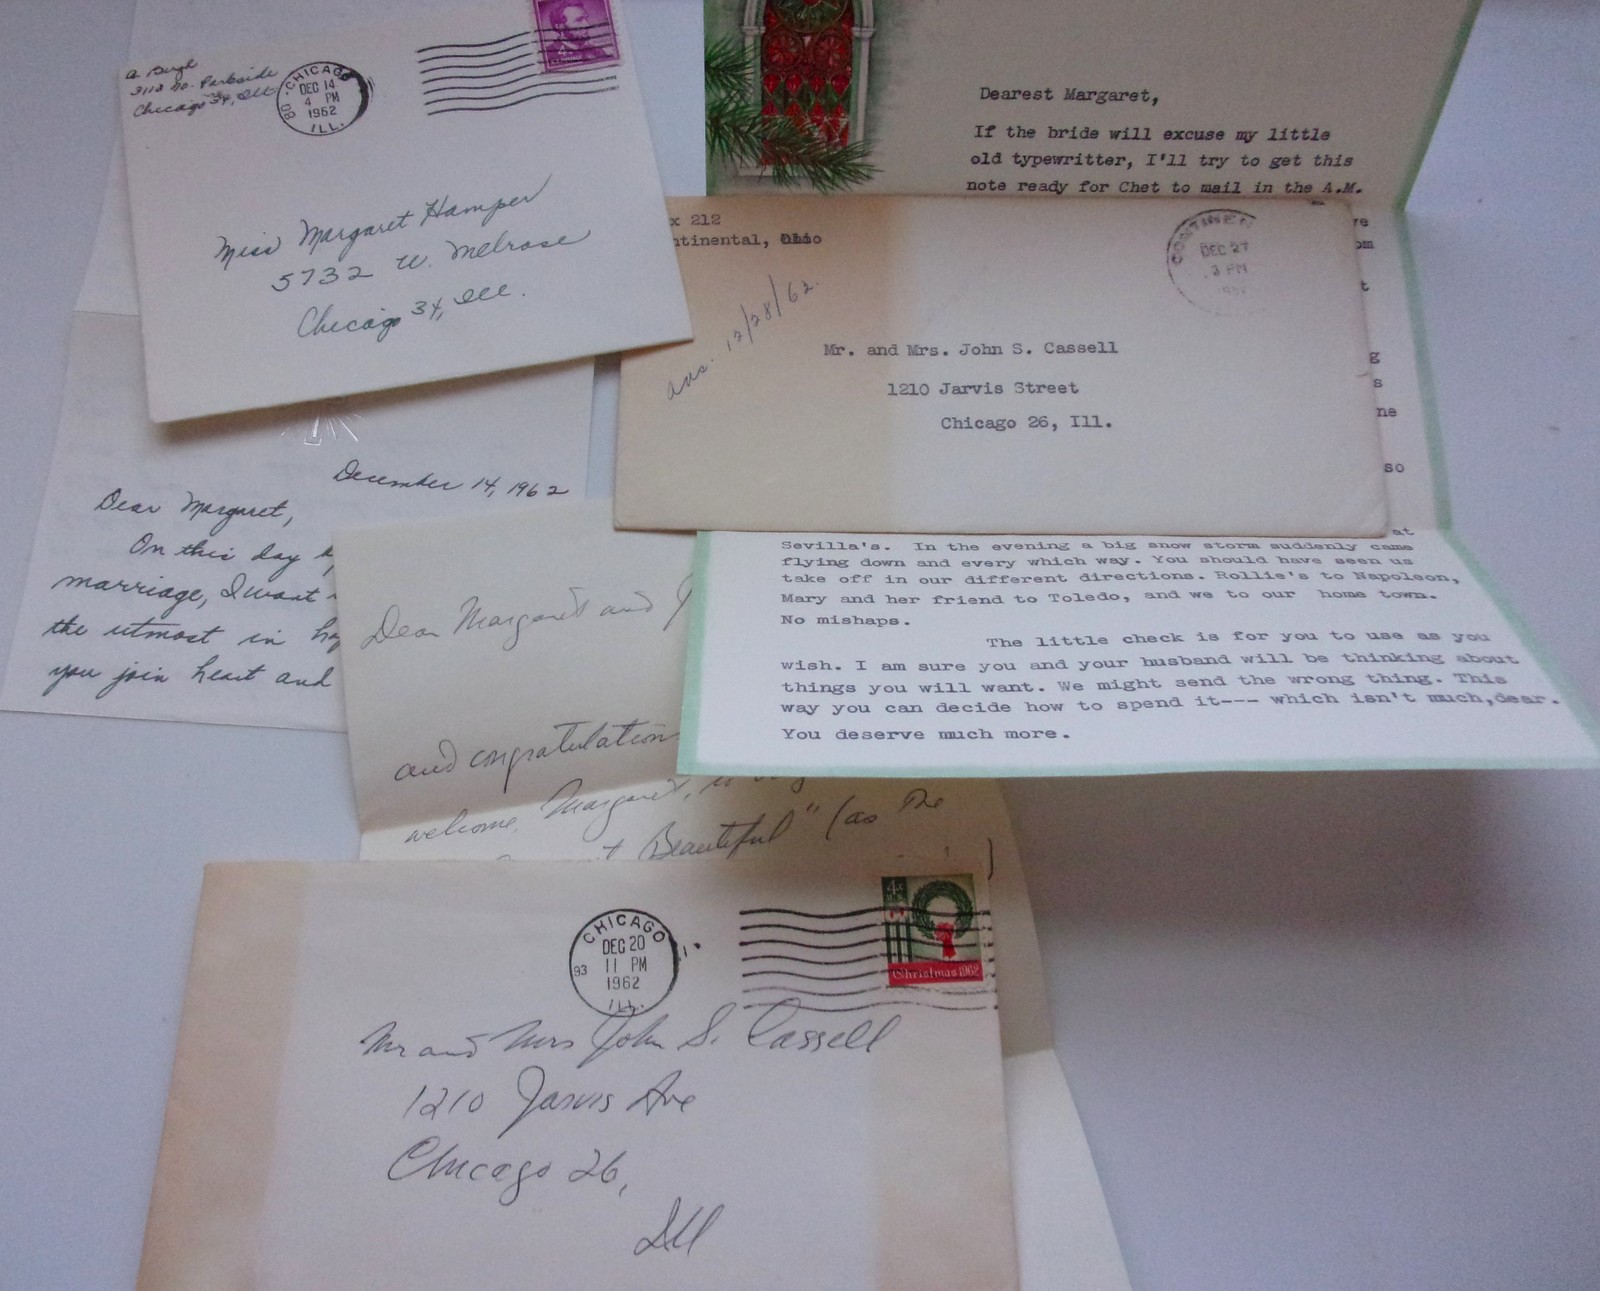 3112 No. Parkside
Chicago 34, Ill.
CHICAGO
DEC 14
4 PM
1962
ILL.
4
Miss Margaret Hamper
5732 W. Melrose
Chicago 34, Ill.
Dearest Margaret,
If the bride will excuse my little
old typewritter, I'll try to get this
note ready for Chet to mail in the A.M.
x 212
ntinental, Ohio
DEC 27
3 PM
ans. 12/28/62.
Mr. and Mrs. John S. Cassell
1210 Jarvis Street
Chicago 26, Ill.
ve
om
t
g
s
ne
so
at
Sevilla's. In the evening a big snow storm suddenly came
flying down and every which way. You should have seen us
take off in our different directions. Rollie's to Napoleon,
Mary and her friend to Toledo, and we to our home town.
No mishaps.
The little check is for you to use as you
wish. I am sure you and your husband will be thinking about
things you will want. We might send the wrong thing. This
way you can decide how to spend it--- which isn't much,dear.
You deserve much more.
December 14, 1962
Dear Margaret,
On this day
marriage, I want
the utmost in
you join heart and
Dear Margaret and J
and congratulation
welcome, Margaret, to
Beautiful" (as the
CHICAGO
DEC 20
93 11 PM
1962
ILL.
4¢
Christmas 1962
Mr and Mrs John S. Cassell
1210 Jarvis Ave
Chicago 26,
Ill